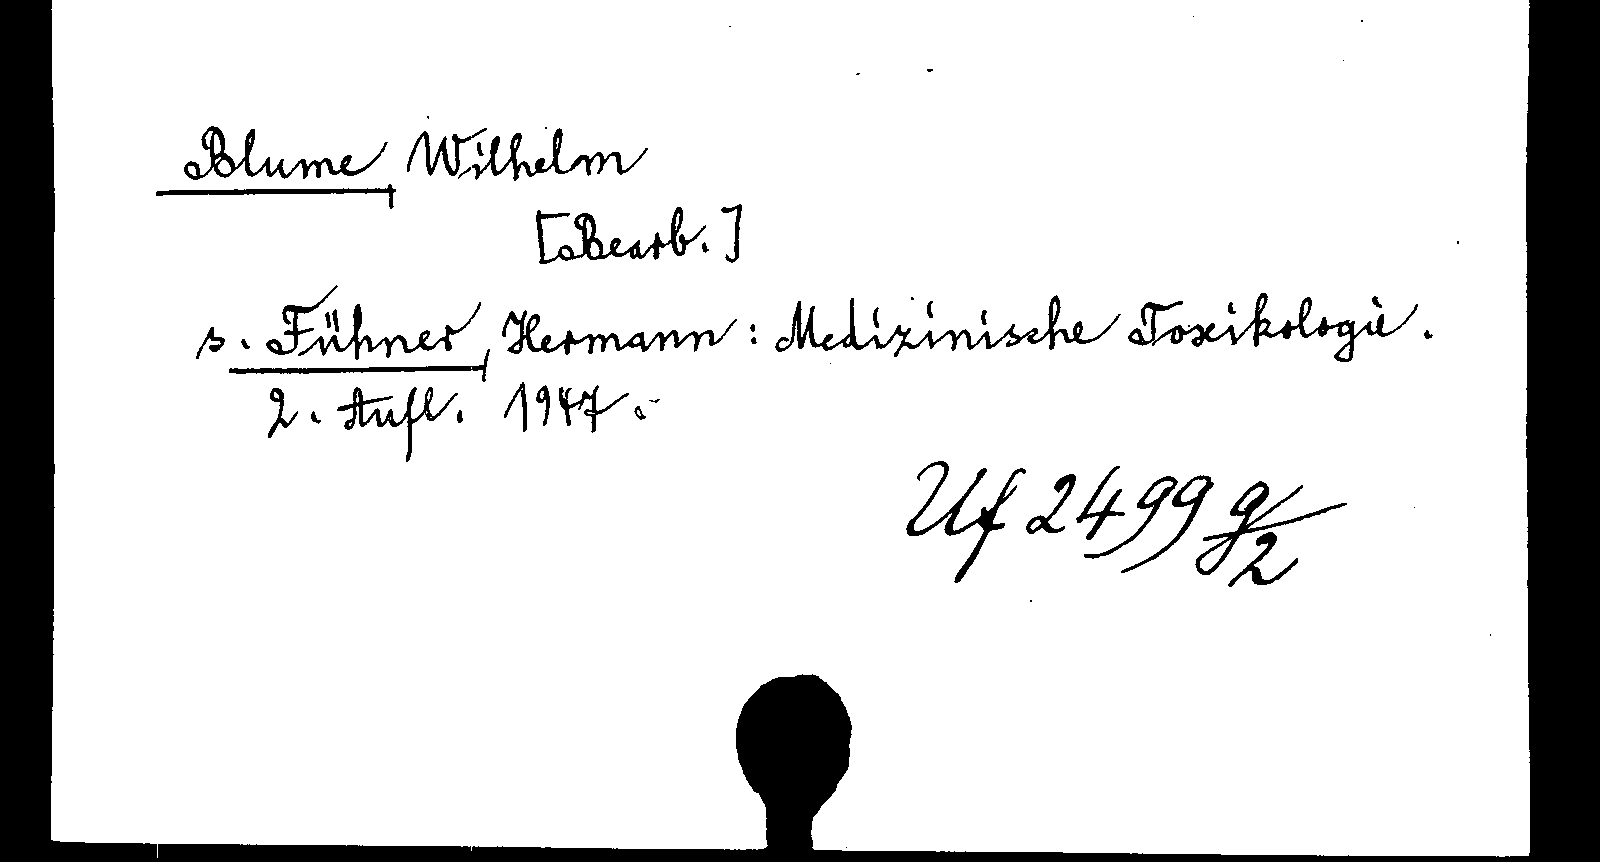 Blume, Wilhelm
[Bearb.]
s. Fühner, Hermann: Medizinische Toxikologie.
2. Aufl. 1947.
Uf 2499 g/2